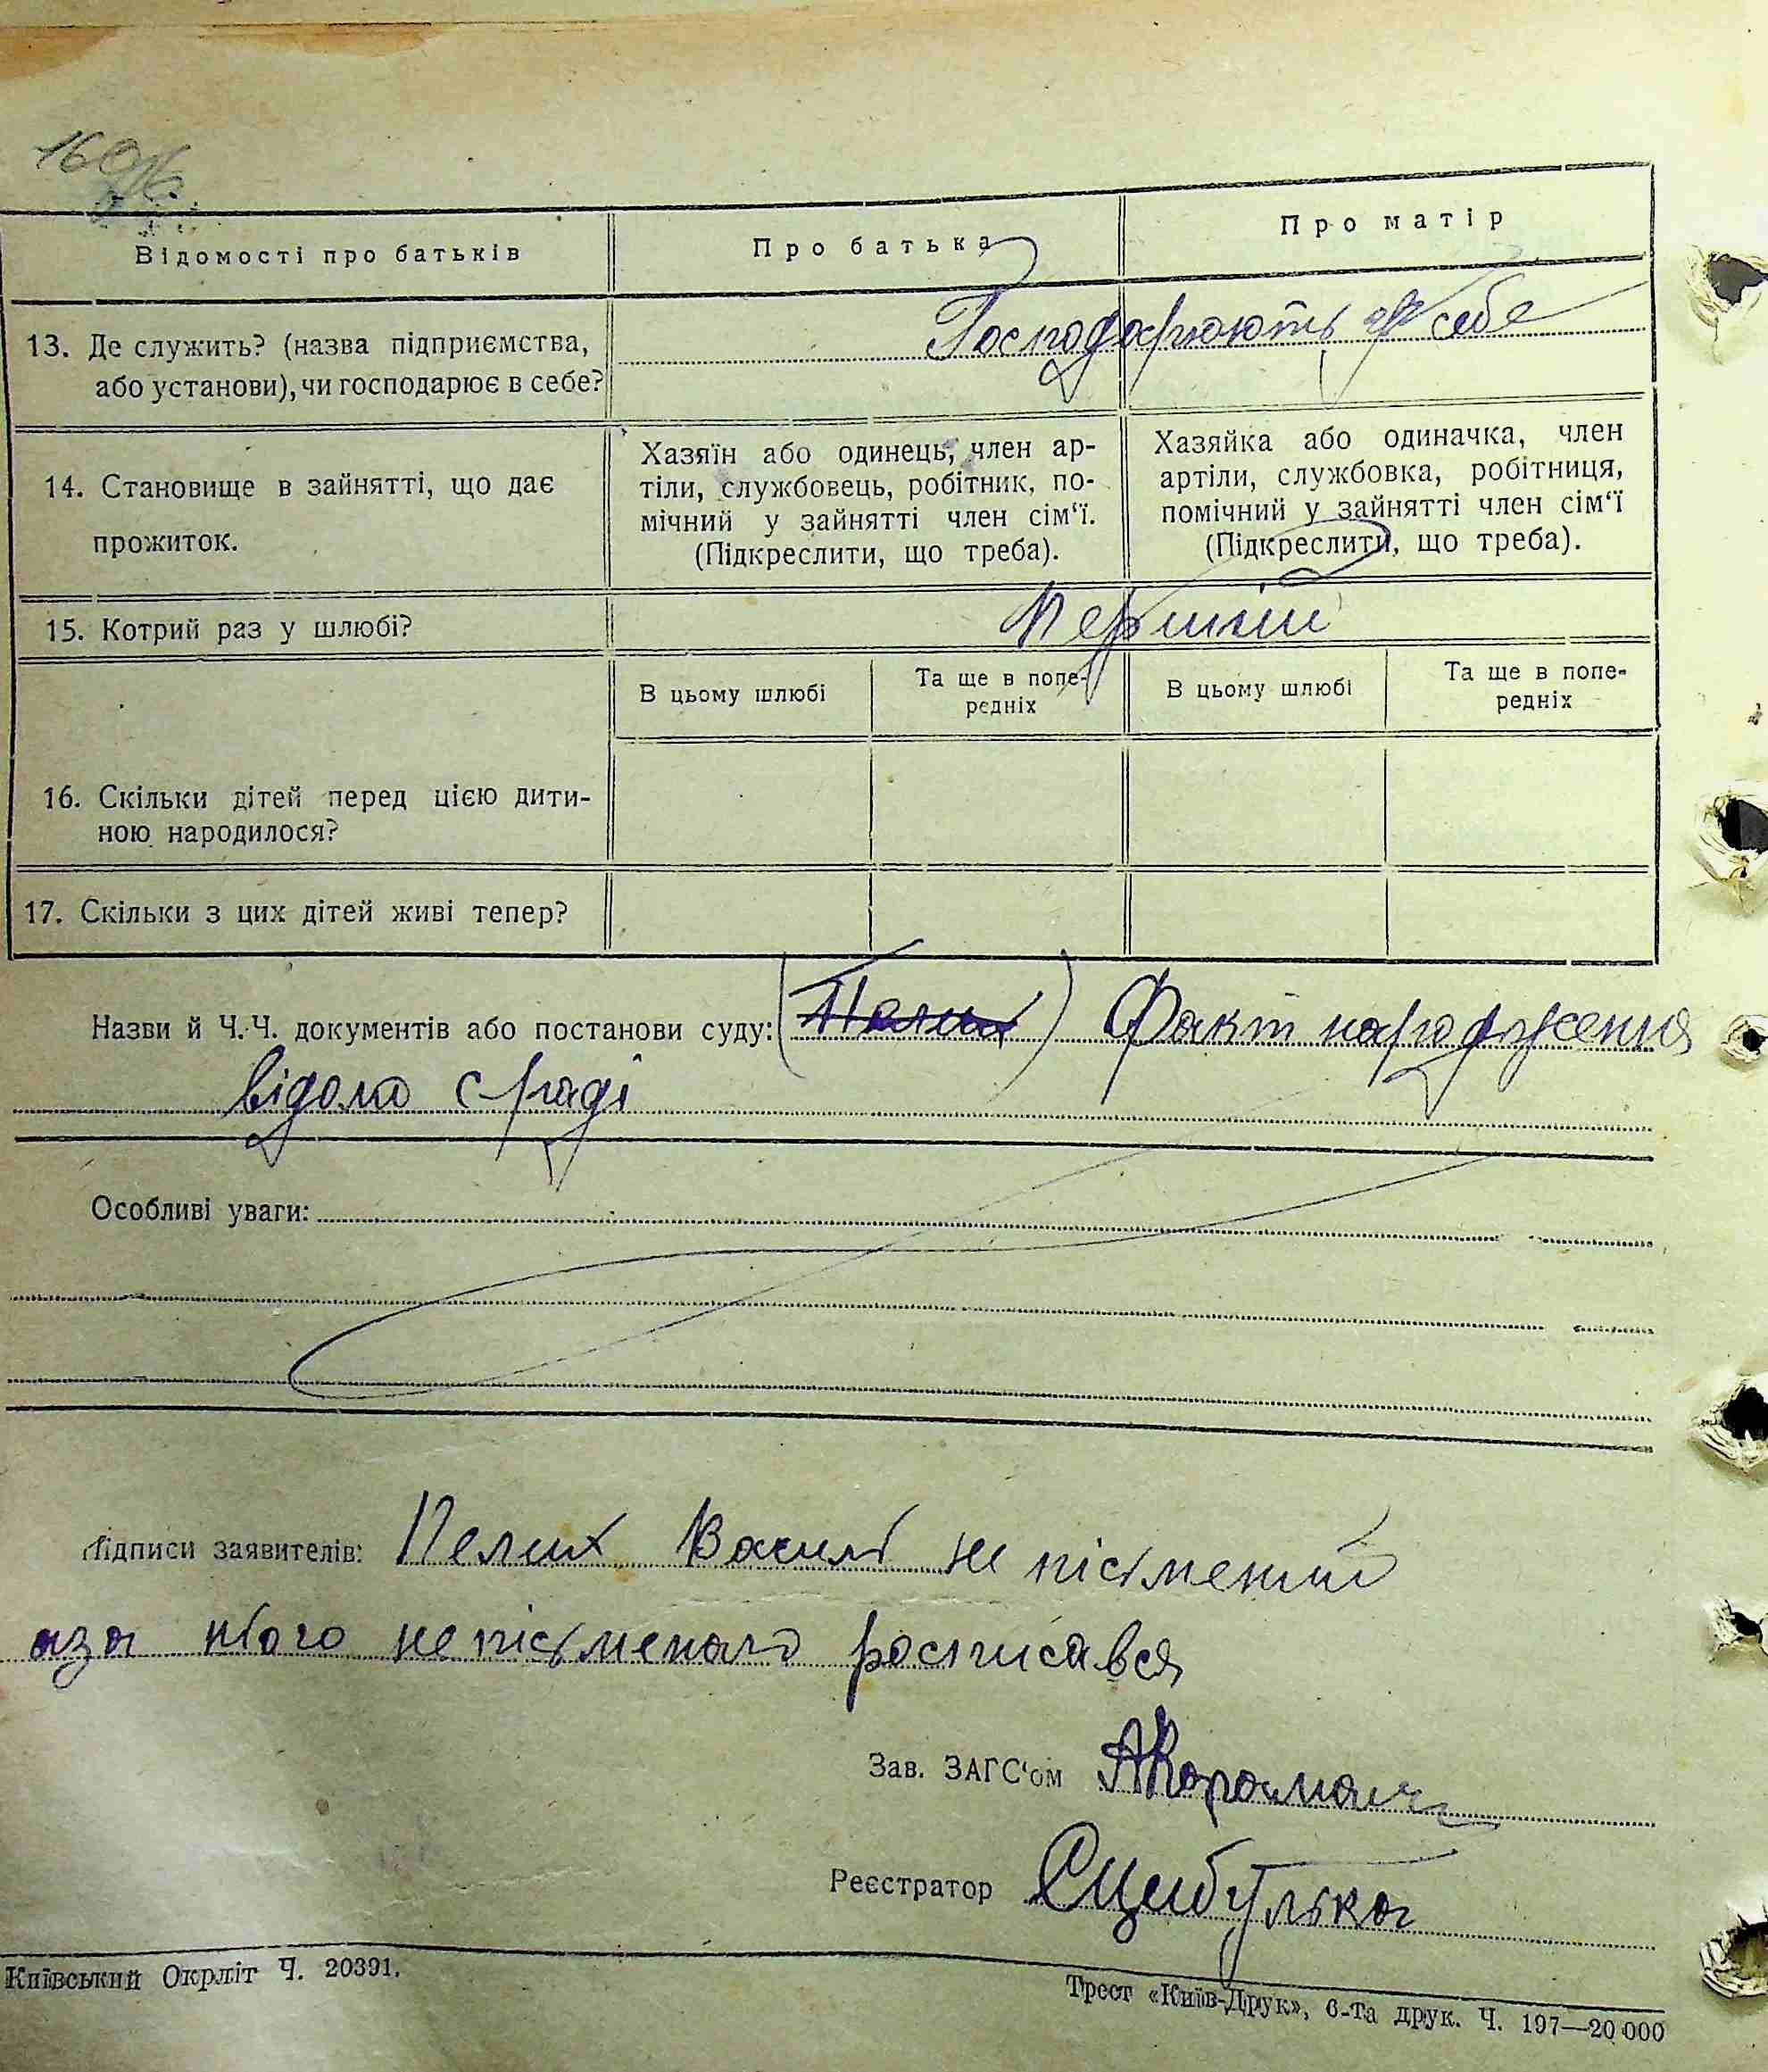 160
Відомості про батьків
Про батька
Про матір
13. Де служить? (назва підприємства,
або установи), чи господарює в себе?
Господарюють у себе
14. Становище в зайнятті, що дає
прожиток.
Хазяїн або одинець, член ар-
тіли, службовець, робітник, по-
мічний у зайнятті член сім‘ї.
(Підкреслити, що треба).
Хазяйка або одиначка, член
артіли, службовка, робітниця,
помічний у зайнятті член сім‘ї
(Підкреслити, що треба).
15. Котрий раз у шлюбі?
Перший
В цьому шлюбі
Та ще в попе-
редніх
В цьому шлюбі
Та ще в попе-
редніх
16. Скільки дітей перед цією дити-
ною народилося?
17. Скільки з цих дітей живі тепер?
Назви й Ч.Ч. документів або постанови суду: (Пелих) Факт народження
відомо с/раді
Особливі уваги:
Підписи заявителів: Пелих Василь не пісьмений
аза нього непісьменого росписався
Зав. ЗАГС‘ом АКараман
Реєстратор ЄЦибулька
Київський Окрліт Ч. 20391.
Трест «Київ-Друк», 6-та друк. Ч. 197—20 000